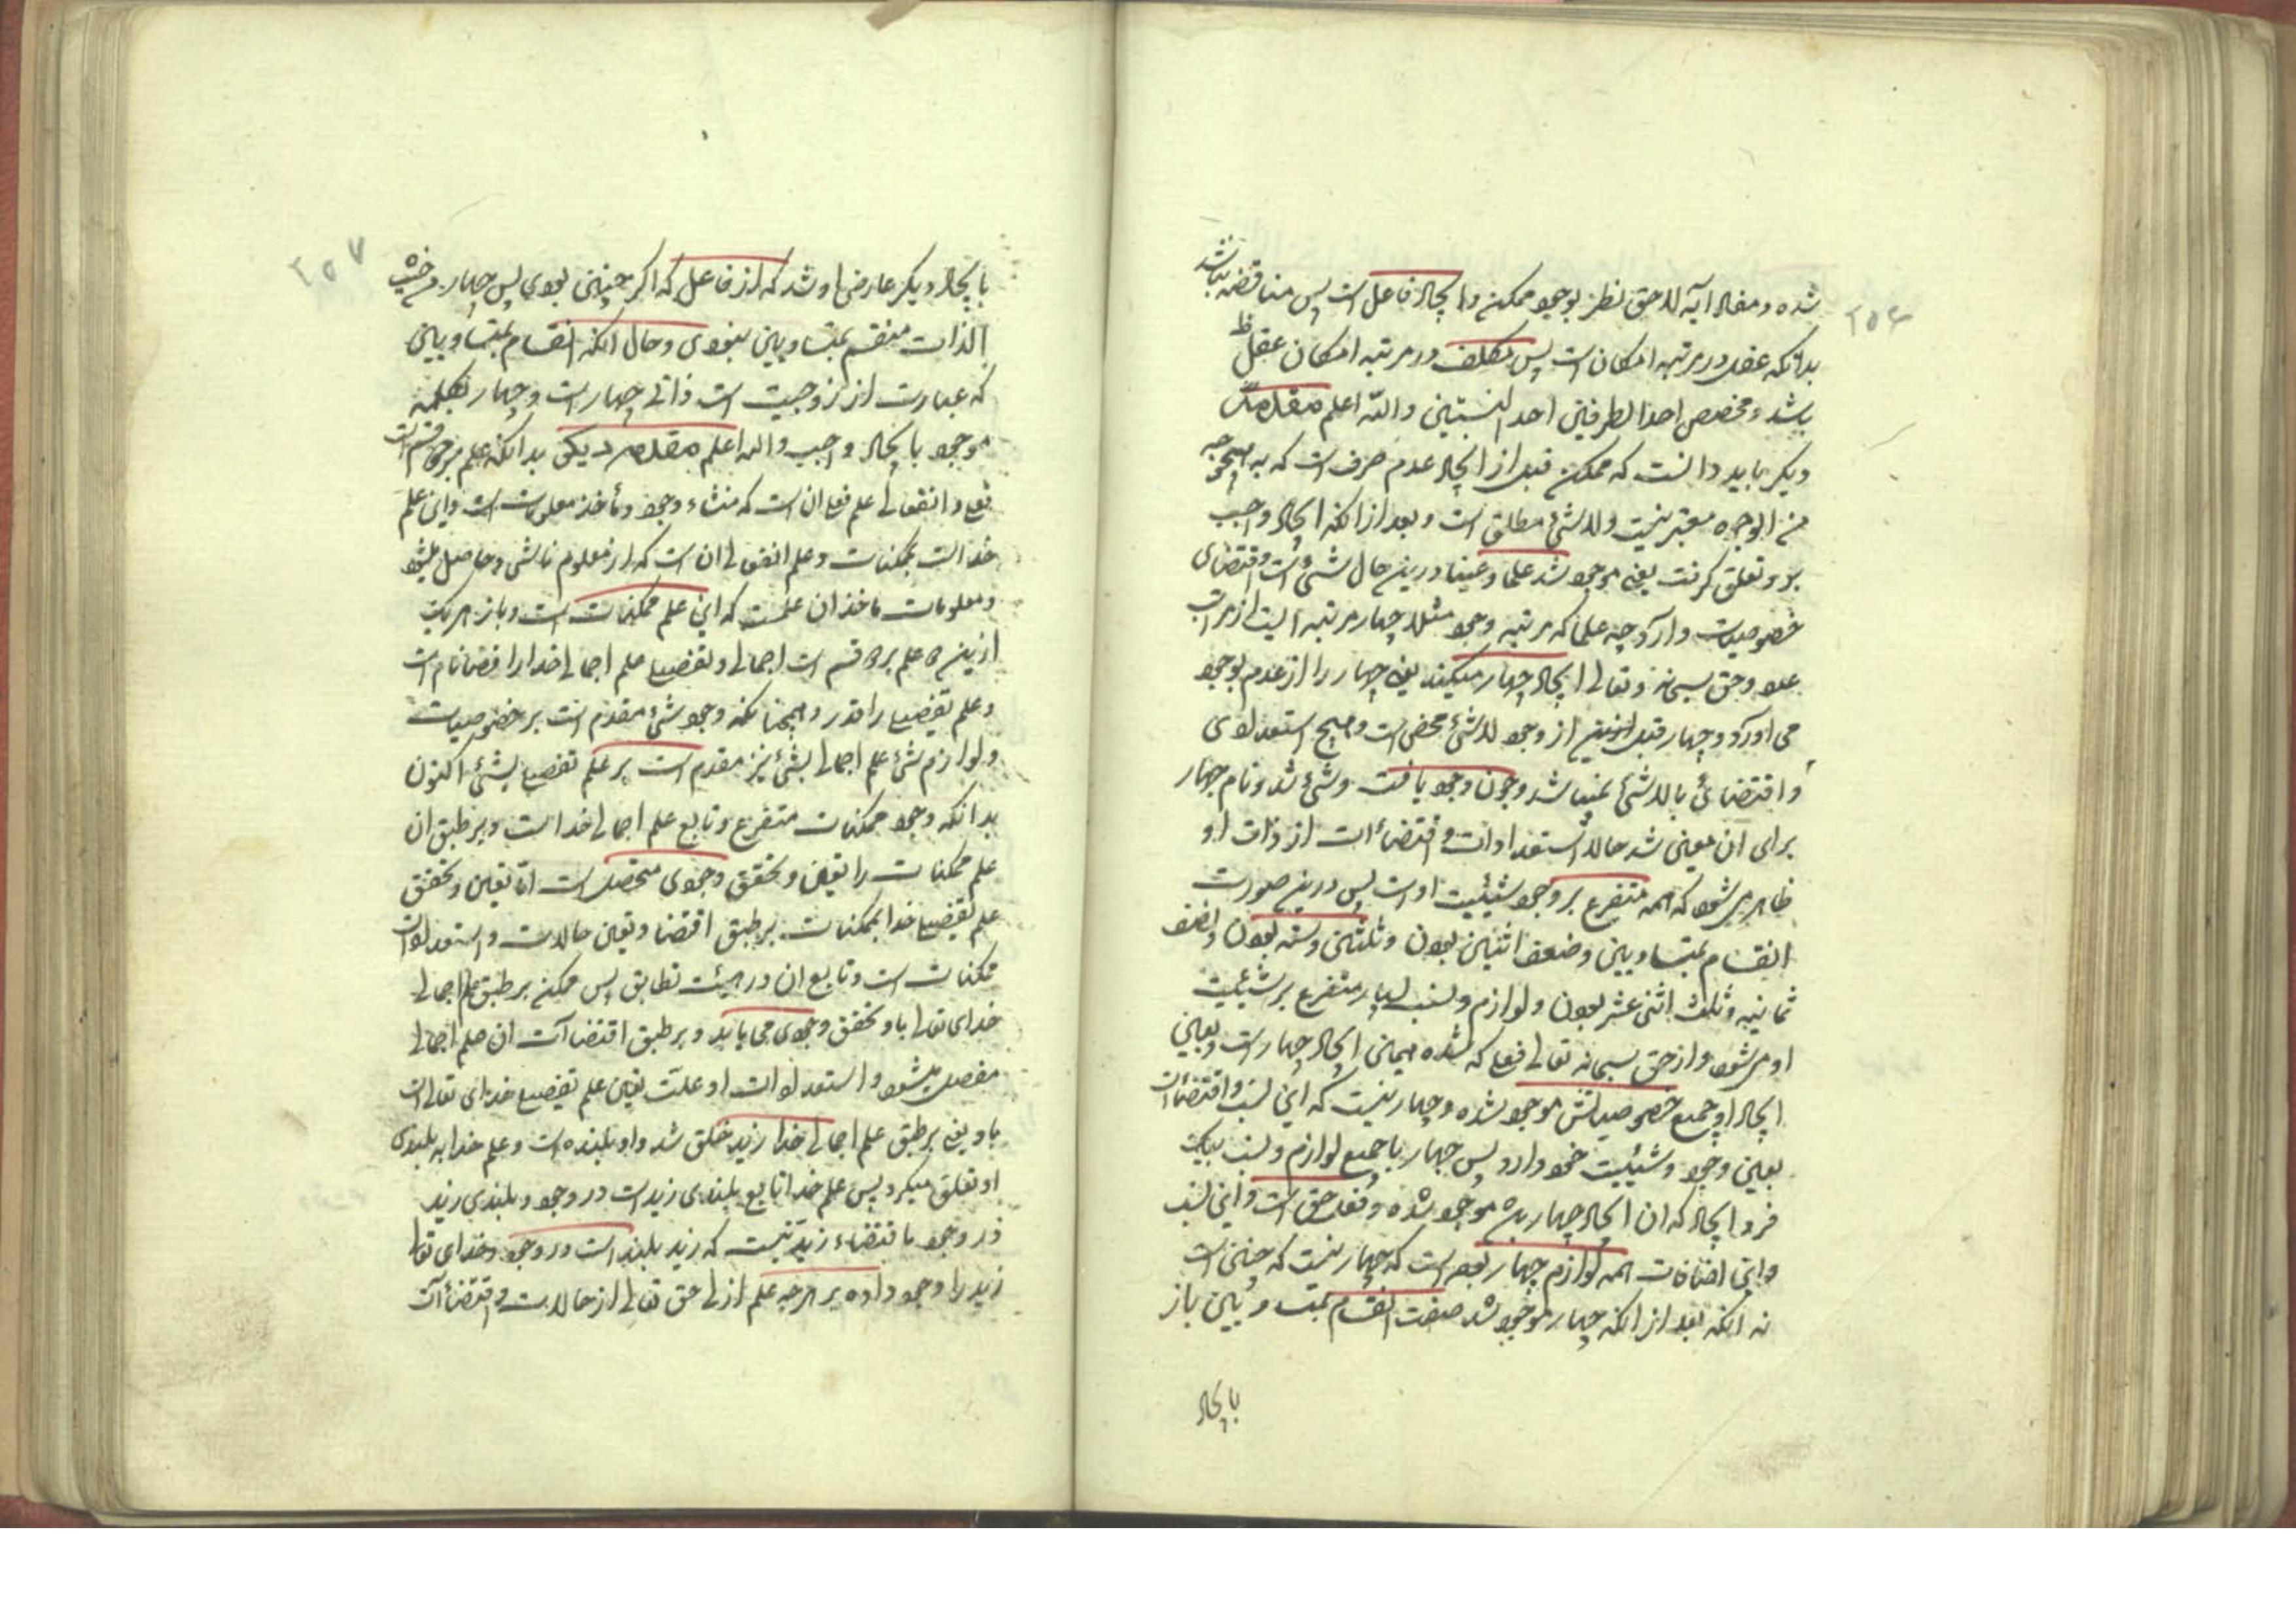 ۲۵۶
شده و مفاد آیه لاحق نظر بوجود ممکن و ایجاد فاعل است پس مناقضه نباشد
بدانکه عقل در مرتبه امکان است پس مکلف در مرتبه امکان عقل
باشد و مخصص احد الطرفین احد النسبتین والله اعلم مقدمه
دیگر باید دانست که ممکن قبل از ایجاد عدم صرف است که به هیچ وجه
من الوجوه معتبر نیست ولا شئ مطلق است و بعد از آنکه ایجاد واجب
برو تعلق گرفت یعنی موجود شد علما و عینا درین حال شئ است و اقتضای
خصوصیات دارد چه علما که مرتبه وجود مثلا چهار مرتبه ایست از مراتب
عدد و حق سبحانه و تعالی ایجاد چهار میکند یعنی چهار را از عدم بوجود
می آورد و چهار قبل ازین از وجود لا شئ محض است و هیچ استعدادی
و اقتضائی با لا شئ نمیباشد و چون وجود یافت و شئ شد و نام چهار
برای آن معین شد حالا استعدادات و اقتضاءات از ذات او
ظاهر میشود که همه متفرع بر وجود شیئیت اوست پس درین صورت
انقسام بمتساویین و ضعف اثنین بودن و ثلثین سته بودن و نصف
ثمانیه و ثلث اثنی عشر بودن و لوازم و نسب بسیار متفرع بر شیئیت
او میشود و از حق سبحانه تعالی فعلی که شده همین ایجاد چهار است و بعین
ایجاد او جمیع خصوصیاتش موجود شده و چهار نیست که این نسب و اقتضاءات
بعین وجود و شیئیت خود دارد پس چهار با جمیع لوازم و نسب بیک
فرد ایجاد که آن ایجاد چهار بود موجود شده و فعل حق است و این نسب
و این اضافات همه لوازم چهار بوده است که چهار نیست که چنین است
نه آنکه بعد از آنکه چهار موجود شد صفت انقسام بمتساویین باز
بایجاد
۲۵۷
بایجاد دیگر عارض او شد که از فاعل که اگر چنین بودی پس چهار من حیث
الذات منقسم بمتساویین نبودی و حال آنکه انقسام بمتساویین
که عبارت از زوجیت است ذاتی چهار است و چهار بکلمه
موجود بایجاد واجب والله اعلم مقدمه دیگر بدانکه علم بر دو قسم است
فعلی و انفعالی علم فعلی آن است که منشاء وجود و مأخذ معلومات است و این علم
خداست بممکنات و علم انفعالی آن است که از معلوم ناشی و حاصل میشود
و معلومات مأخذ آن علمست که این علم ممکنات است و باز هر یک
ازین دو علم بر دو قسم است اجمالی و تفصیلی علم اجمالی خدا را قضا نام است
و علم تفصیلی را قدر و همچنانکه وجود شئ مقدم است بر خصوصیات
و لوازم شئ علم اجمالی بشئ نیز مقدم است بر علم تفصیلی بشئ اکنون
بدانکه وجود ممکنات متفرع و تابع علم اجمالی خداست و بر طبق آن
علم ممکنات را تعین و تحقق وجودی متحصل است اما تعین و تحقق
علم تفصیلی خدا بممکنات بر طبق اقتضا و تعین حالات و استعدادات
ممکنات است و تابع آن در هیئت تطابق پس ممکن بر طبق علم اجمالی
خدای تعالی باو تحقق وجودی می یابد و بر طبق اقتضاآت آن علم اجمالی
مفصل میشود و استعدادات او علت تعین علم تفصیلی خدای تعالی است
باو یعنی بر طبق علم اجمالی خدا زید خلق شد و او بلنده است و علم خدا به بلندی
او تعلق میگیرد پس علم خدا تابع بلندی زید است در وجود و بلندی زید
در وجود باقتضاء زید نیست که زید بلند است در وجود و خدای تعالی
زید را وجود داده بر هر چه علم ازلی حق تعالی از حالات و اقتضاآت